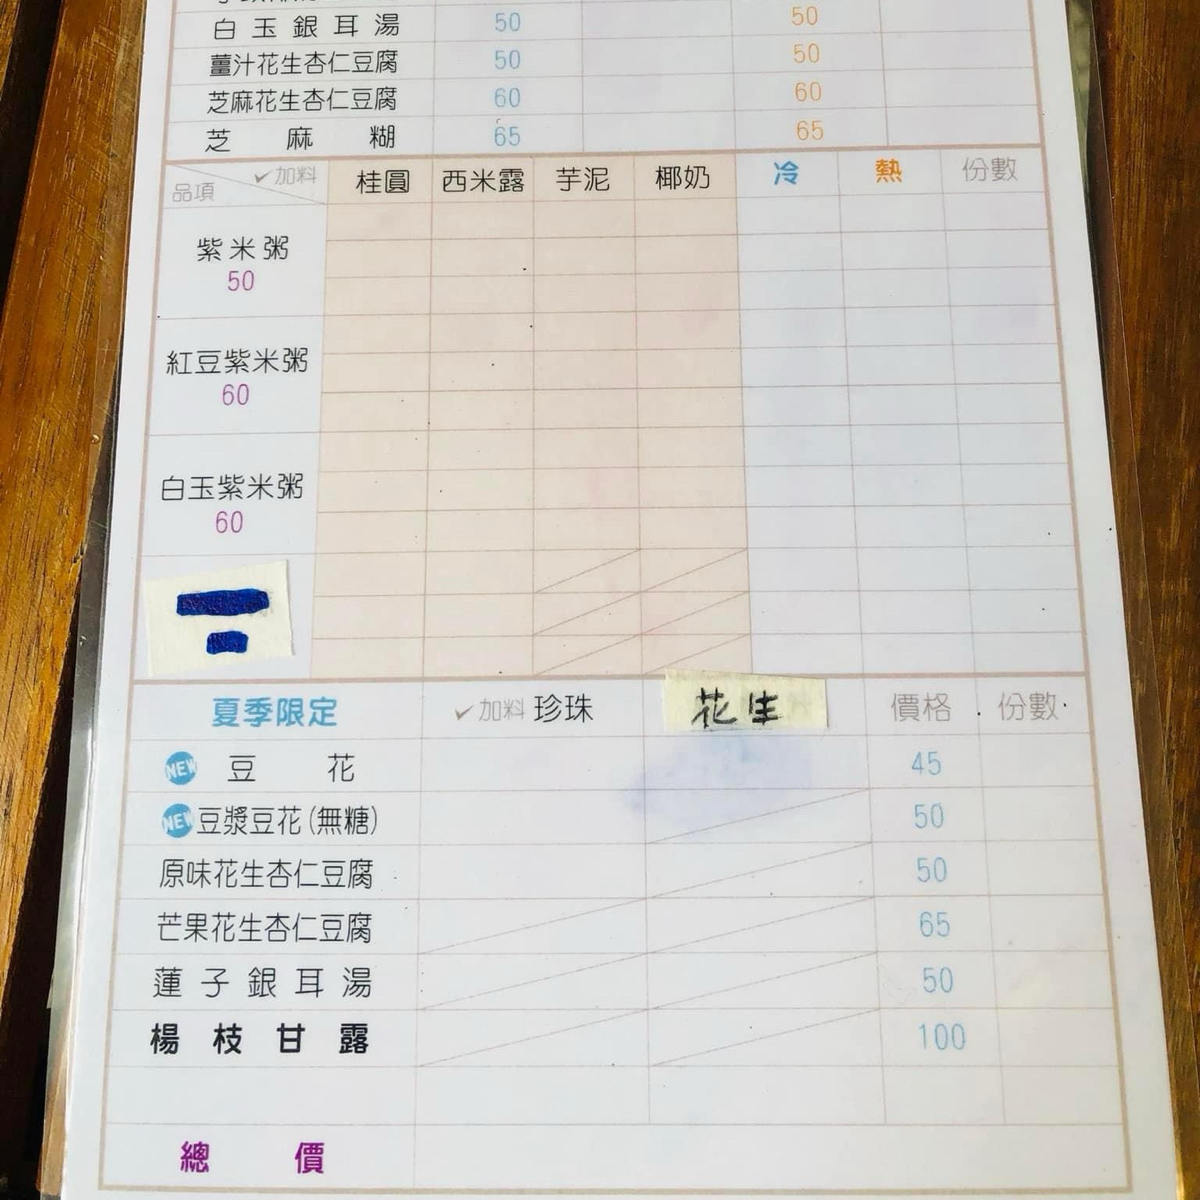 白玉銀耳湯 50 50
薑汁花生杏仁豆腐 50 50
芝麻花生杏仁豆腐 60 60
芝麻糊 65 65
品項 ✓加料 桂圓 西米露 芋泥 椰奶 冷 熱 份數
紫米粥
50
紅豆紫米粥
60
白玉紫米粥
60
夏季限定 ✓加料 珍珠 花生 價格 份數
NEW 豆花 45
NEW 豆漿豆花(無糖) 50
原味花生杏仁豆腐 50
芒果花生杏仁豆腐 65
蓮子銀耳湯 50
楊枝甘露 100
總價